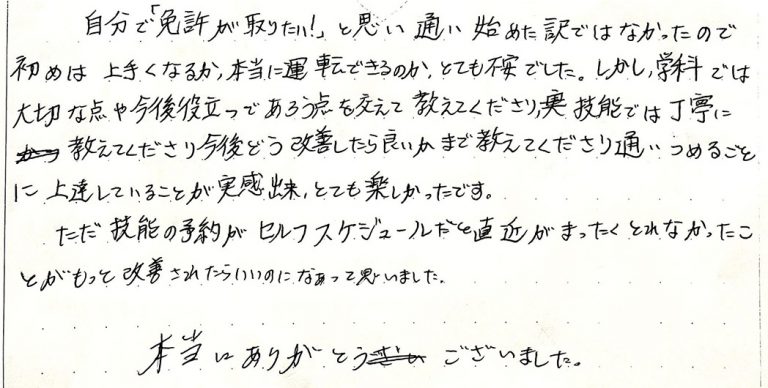 自分で「免許が取りたい!」と思い通い始めた訳ではなかったので
初めは上手くなるか,本当に運転できるのか,とても不安でした。しかし,学科では
大切な点や今後役立つであろう点を交えて教えてくださり,実技能では丁寧に
教えてくださり今後どう改善したら良いかまで教えてくださり通いつめるごと
に上達していることが実感出来,とても楽しかったです。
ただ技能の予約がセルフスケジュールだと直近がまったくとれなかったこ
とがもっと改善されたらいいのになぁって思いました.
本当にありがとうございました。